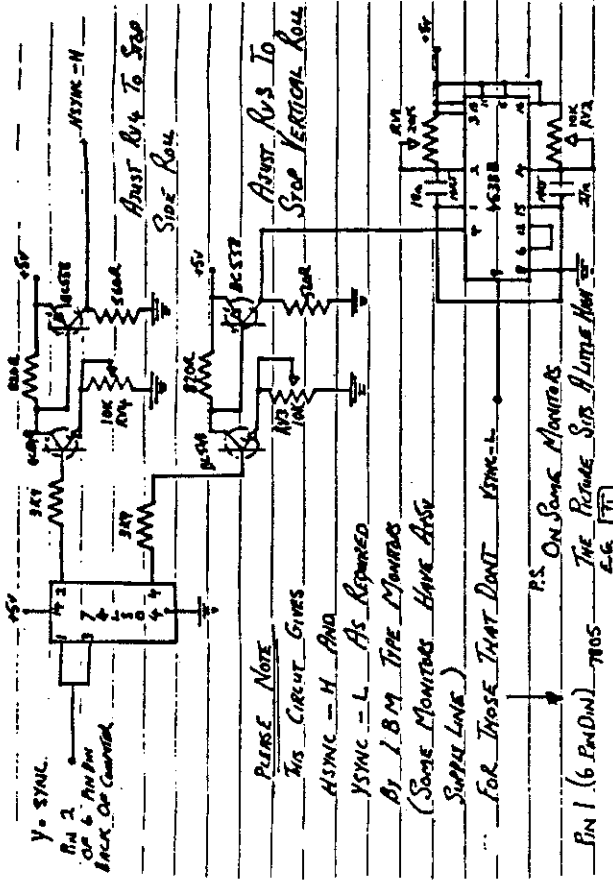 Y = SYNC.
PIN 2
OF 6 PIN DIN
BACK OF COMPUTER
+5V
1
3
14
2
7
4
L
S
0
4
3K9
3K9
820R
+5V
BC558
560R
10K
RV4
HSYNC-H
ADJUST RV4 TO STOP
SIDE ROLL
820R
+5V
BC558
RV3
10K
ADJUST RV3 TO
STOP VERTICAL ROLL
PLEASE NOTE
THIS CIRCUIT GIVES
HSYNC - H AND
VSYNC - L AS REQUIRED
BY IBM TYPE MONITORS
(SOME MONITORS HAVE A +5V
SUPPLY LINE)
FOR THOSE THAT DONT
VSYNC-L
PIN 1 (6 PIN DIN) 7805
P.S. ON SOME MONITORS
THE PICTURE SITS A LITTLE HIGH
E.G.
RV1
10n
+5V
4538B
1
2
4
6
12
15
14
16
10K
RV2